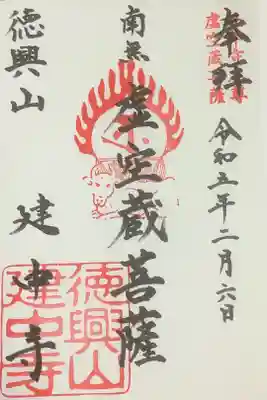 奉拝
令和五年二月六日
南無
虚空蔵菩薩
徳興山
建中寺
徳興山
建中寺